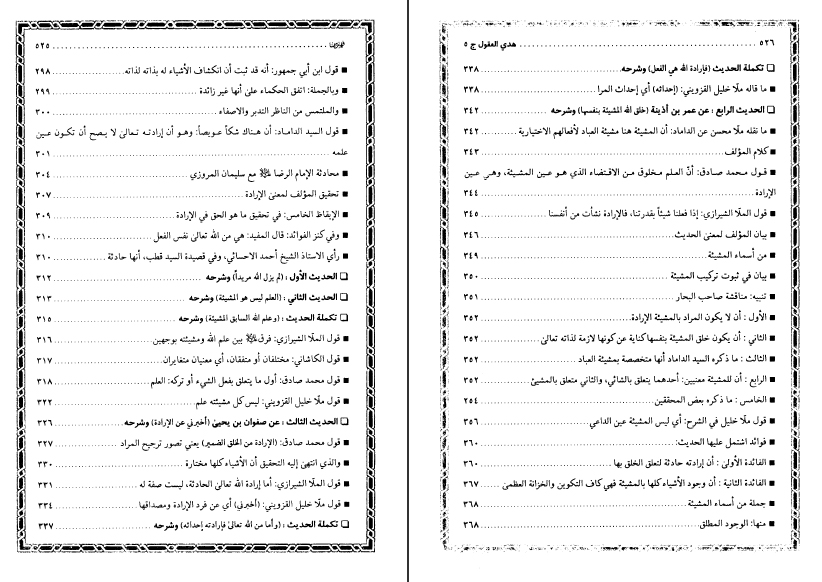 الفهرست ........ ٥٢٥
■ قول ابن أبي جمهور: أنه قد ثبت أن انكشاف الأشياء له بذاته لذاته ........ ٢٩٨
■ وبالجملة: اتفق الحكماء على أنها غير زائدة ........ ٢٩٩
■ والملتمس من الناظر التدبر والاصفاء ........ ٣٠٠
■ قول السيد الداماد: أن هناك شكاً عويصاً: وهو أن إرادته تعالى لا يصح أن تكون عين
علمه ........ ٣٠١
■ محادثة الإمام الرضا ﷺ مع سليمان المروزي ........ ٣٠٤
■ تحقيق المؤلف لمعنى الإرادة ........ ٣٠٧
■ الإيقاظ الخامس: في تحقيق ما هو الحق في الإرادة ........ ٣٠٩
■ وفي كنز الفوائد: قال المفيد: هي من الله تعالى نفس الفعل ........ ٣١٠
■ رأي الاستاذ الشيخ أحمد الاحسائي، وفي قصيدة السيد قطب، أنها حادثة ........ ٣١٠
❑ الحديث الأول : (لم يزل الله مريداً) وشرحه ........ ٣١٢
❑ الحديث الثاني : (العلم ليس هو المشيئة) وشرحه ........ ٣١٣
❑ تكملة الحديث : (وعلم الله السابق المشيئة) وشرحه ........ ٣١٥
■ قول الملّا الشيرازي: فرق ﷺ بين علم الله ومشيئته بوجهين ........ ٣١٦
■ قول الكاشاني: مختلفان أو متفقان، أي معنيان متغايران ........ ٣١٧
■ قول محمد صادق: أول ما يتعلق بفعل الشيء أو تركه: العلم ........ ٣١٨
■ قول ملّا خليل القزويني: ليس كل مشيئته علم ........ ٣٢٢
❑ الحديث الثالث : عن صفوان بن يحيى (أخبرني عن الإرادة) وشرحه ........ ٣٢٦
■ قول محمد صادق: (الإرادة من الخلق الضمير) يعني تصور ترجيح المراد ........ ٣٢٧
■ والذي انتهى إليه التحقيق أن الأشياء كلها مختارة ........ ٣٣٠
■ قول الملّا الشيرازي: أما إرادة الله تعالى الحادثة، ليست صفة له ........ ٣٣١
■ قول ملّا خليل القزويني: (أخبرني) أي عن فرد الإرادة ومصداقها ........ ٣٣٤
❑ تكملة الحديث : (وأما من الله تعالى فإرادته إحداثه) وشرحه ........ ٣٣٧
٥٢٦ ........ هدي العقول ج ٥
❑ تكملة الحديث (فإرادة الله هي الفعل) وشرحه ........ ٣٣٨
■ ما قاله ملّا خليل القزويني: (إحداثه) أي إحداث المرا ........ ٣٣٨
❑ الحديث الرابع : عن عمر بن أذينة (خلق الله المشيئة بنفسها) وشرحه ........ ٣٤٢
■ ما نقله ملّا محسن عن الداماد: أن المشيئة هنا مشيئة العباد لأفعالهم الاختيارية ........ ٣٤٢
■ كلام المؤلف ........ ٣٤٣
■ قول محمد صادق: أنّ العلم مخلوق من الاقتضاء الذي هو عين المشيئة، وهي عين
الإرادة ........ ٣٤٤
■ قول الملّا الشيرازي: إذا فعلنا شيئاً بقدرتنا، فالإرادة نشأت من أنفسنا ........ ٣٤٥
■ بيان المؤلف لمعنى الحديث ........ ٣٤٦
■ من أسماء المشيئة ........ ٣٤٩
■ بيان في ثبوت تركيب المشيئة ........ ٣٥٠
■ تنبيه: مناقشة صاحب البحار ........ ٣٥١
■ الأول : أن لا يكون المراد بالمشيئة الإرادة ........ ٣٥٢
■ الثاني : أن يكون خلق المشيئة بنفسها كناية عن كونها لازمة لذاته تعالى ........ ٣٥٢
■ الثالث : ما ذكره السيد الداماد أنها متخصصة بمشيئة العباد ........ ٣٥٢
■ الرابع : أن للمشيئة معنيين: أحدهما يتعلق بالشائي، والثاني متعلق بالمشيئ ........ ٣٥٢
■ الخامس : ما ذكره بعض المحققين ........ ٢٥٤
■ قول ملّا خليل في الشرح: أي ليس المشيئة عين الداعي ........ ٣٥٦
■ فوائد اشتمل عليها الحديث: ........ ٣٦٠
■ الفائدة الأولى : أن إرادته حادثة لتعلق الخلق بها ........ ٣٦٠
■ الفائدة الثانية : أن وجود الأشياء كلها بالمشيئة فهي كاف التكوين والخزانة العظمى ........ ٣٦٧
■ جملة من أسماء المشيئة ........ ٣٦٨
■ منها: الوجود المطلق ........ ٣٦٨